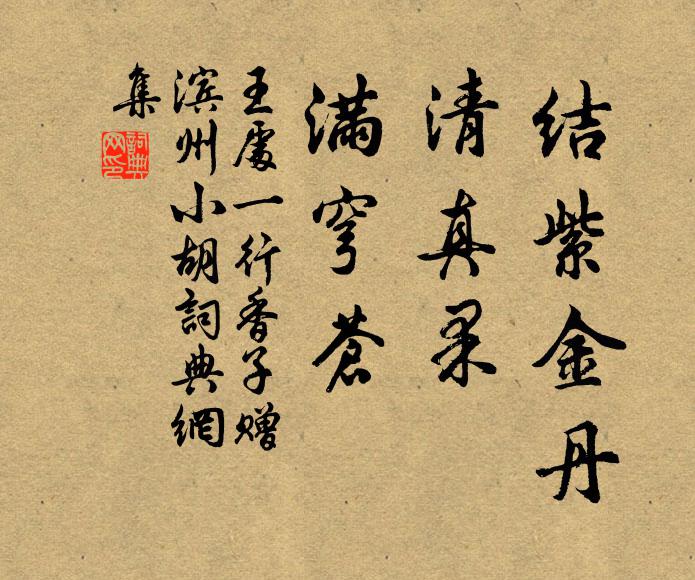 结紫金丹
清真果
滿穹蒼
王處一行香子赠
滨州小胡詞典網
集
詞典
网印